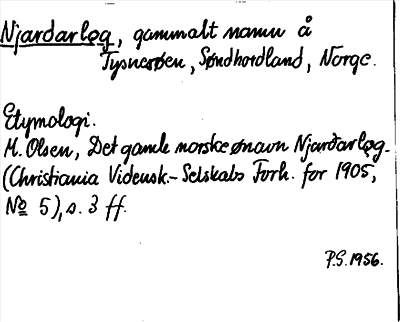 Njarðarlǫg, gammalt namn å
Tysnesøen, Søndhordland, Norge.
Etymologi.
M. Olsen, Det gamle norske ønavn Njarðarlǫg.
(Christiania Vidensk.-Selskabs Forh. for 1905,
No 5), s. 3 ff.
P.S. 1956.